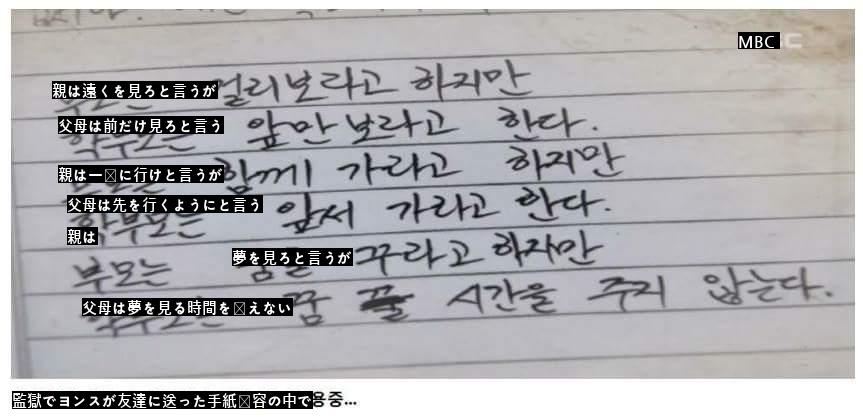 MBC
親は遠くを見ろと言うが 멀리보라고 하지만
父母は前だけ見ろと言う 앞만 보라고 한다.
親は一�に行けと言うが 함께 가라고 하지만
父母は先を行くようにと言う 앞서 가라고 한다.
親は
부모는 夢を見ろと言うが 꾸라고 하지만
父母は夢を見る時間を�えない 꿈 꿀 시간을 주지 않는다.
監獄でヨンスが友達に送った手紙�容の中で용중...